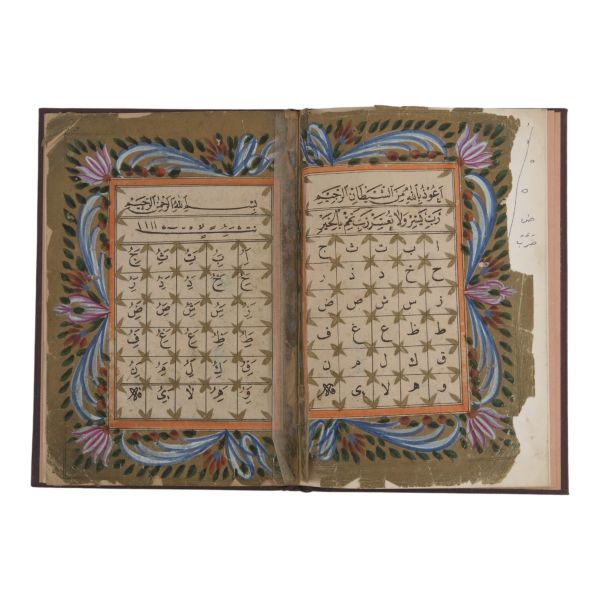 اعوذ بالله من الشيطان الرجيم
رب يسر ولا تعسر رب تمم بالخير
ا ب ت ث ج
ح خ د ذ ر
ز س ش ص ض
ط ظ ع غ ف
ق ك ل م ن
و ه لا ى
بسم الله الرحمن الرحيم
اَ بَ تَ ثَ جَ
حَ خَ دَ ذَ رَ
زَ سَ شَ صَ ضَ
طَ ظَ عَ غَ فَ
قَ كَ لَ مَ نَ
وَ هَ لا ىَ